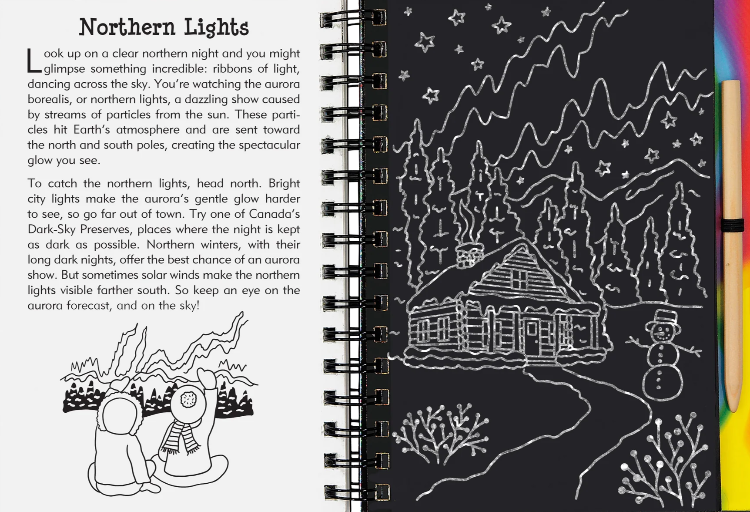 Northern Lights
Look up on a clear northern night and you might
glimpse something incredible: ribbons of light,
dancing across the sky. You're watching the aurora
borealis, or northern lights, a dazzling show caused
by streams of particles from the sun. These parti-
cles hit Earth's atmosphere and are sent toward
the north and south poles, creating the spectacular
glow you see.
To catch the northern lights, head north. Bright
city lights make the aurora's gentle glow harder
to see, so go far out of town. Try one of Canada's
Dark-Sky Preserves, places where the night is kept
as dark as possible. Northern winters, with their
long dark nights, offer the best chance of an aurora
show. But sometimes solar winds make the northern
lights visible farther south. So keep an eye on the
aurora forecast, and on the sky!